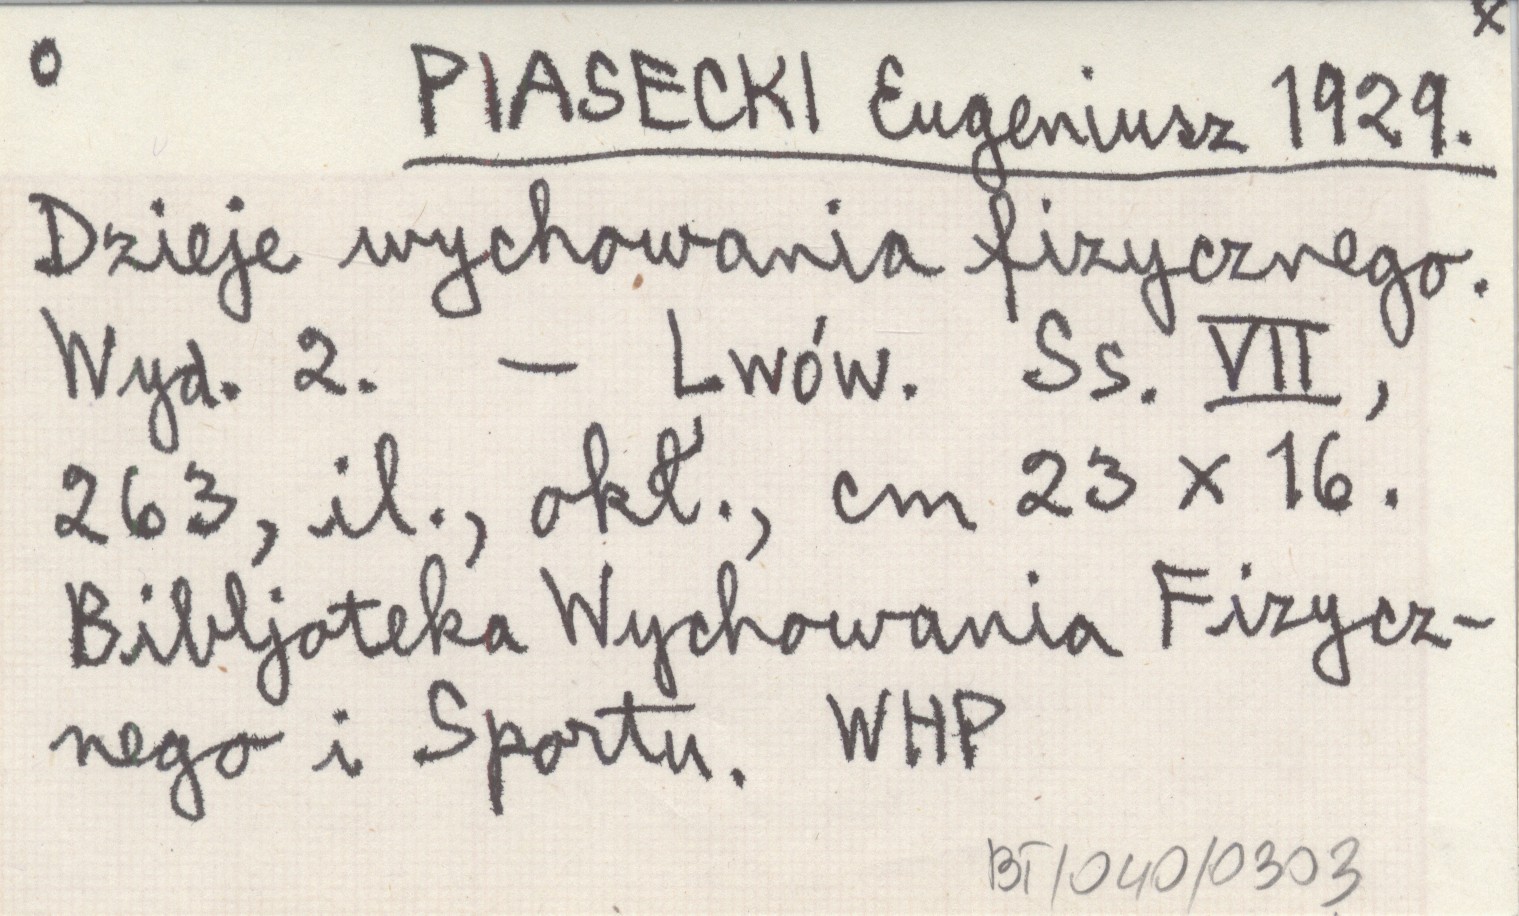 o x
PIASECKI Eugeniusz 1929.
Dzieje wychowania fizycznego.
Wyd. 2. – Lwów. Ss. VII,
263, il., okł., cm 23 x 16.
Bibljoteka Wychowania Fizycz-
nego i Sportu. WHP
BT/040/0303